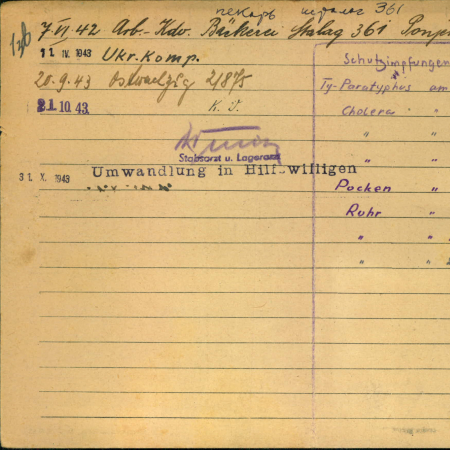 пекарь шталаг 361
7 VI. 42 Arb.- Kdo. Bäckerei Stalag 361
11. IV. 1943 Ukr. Komp.
Schutzimpfungen
20.-9.43 2/875
Ty-Paratyphus am
21.10.43.
Cholera "
"  "
Stabsarzt u. Lagerarzt
"  "
31. X. 1943 Umwandlung in Hilfswilligen
Pocken "
Ruhr "
"  "
"  "